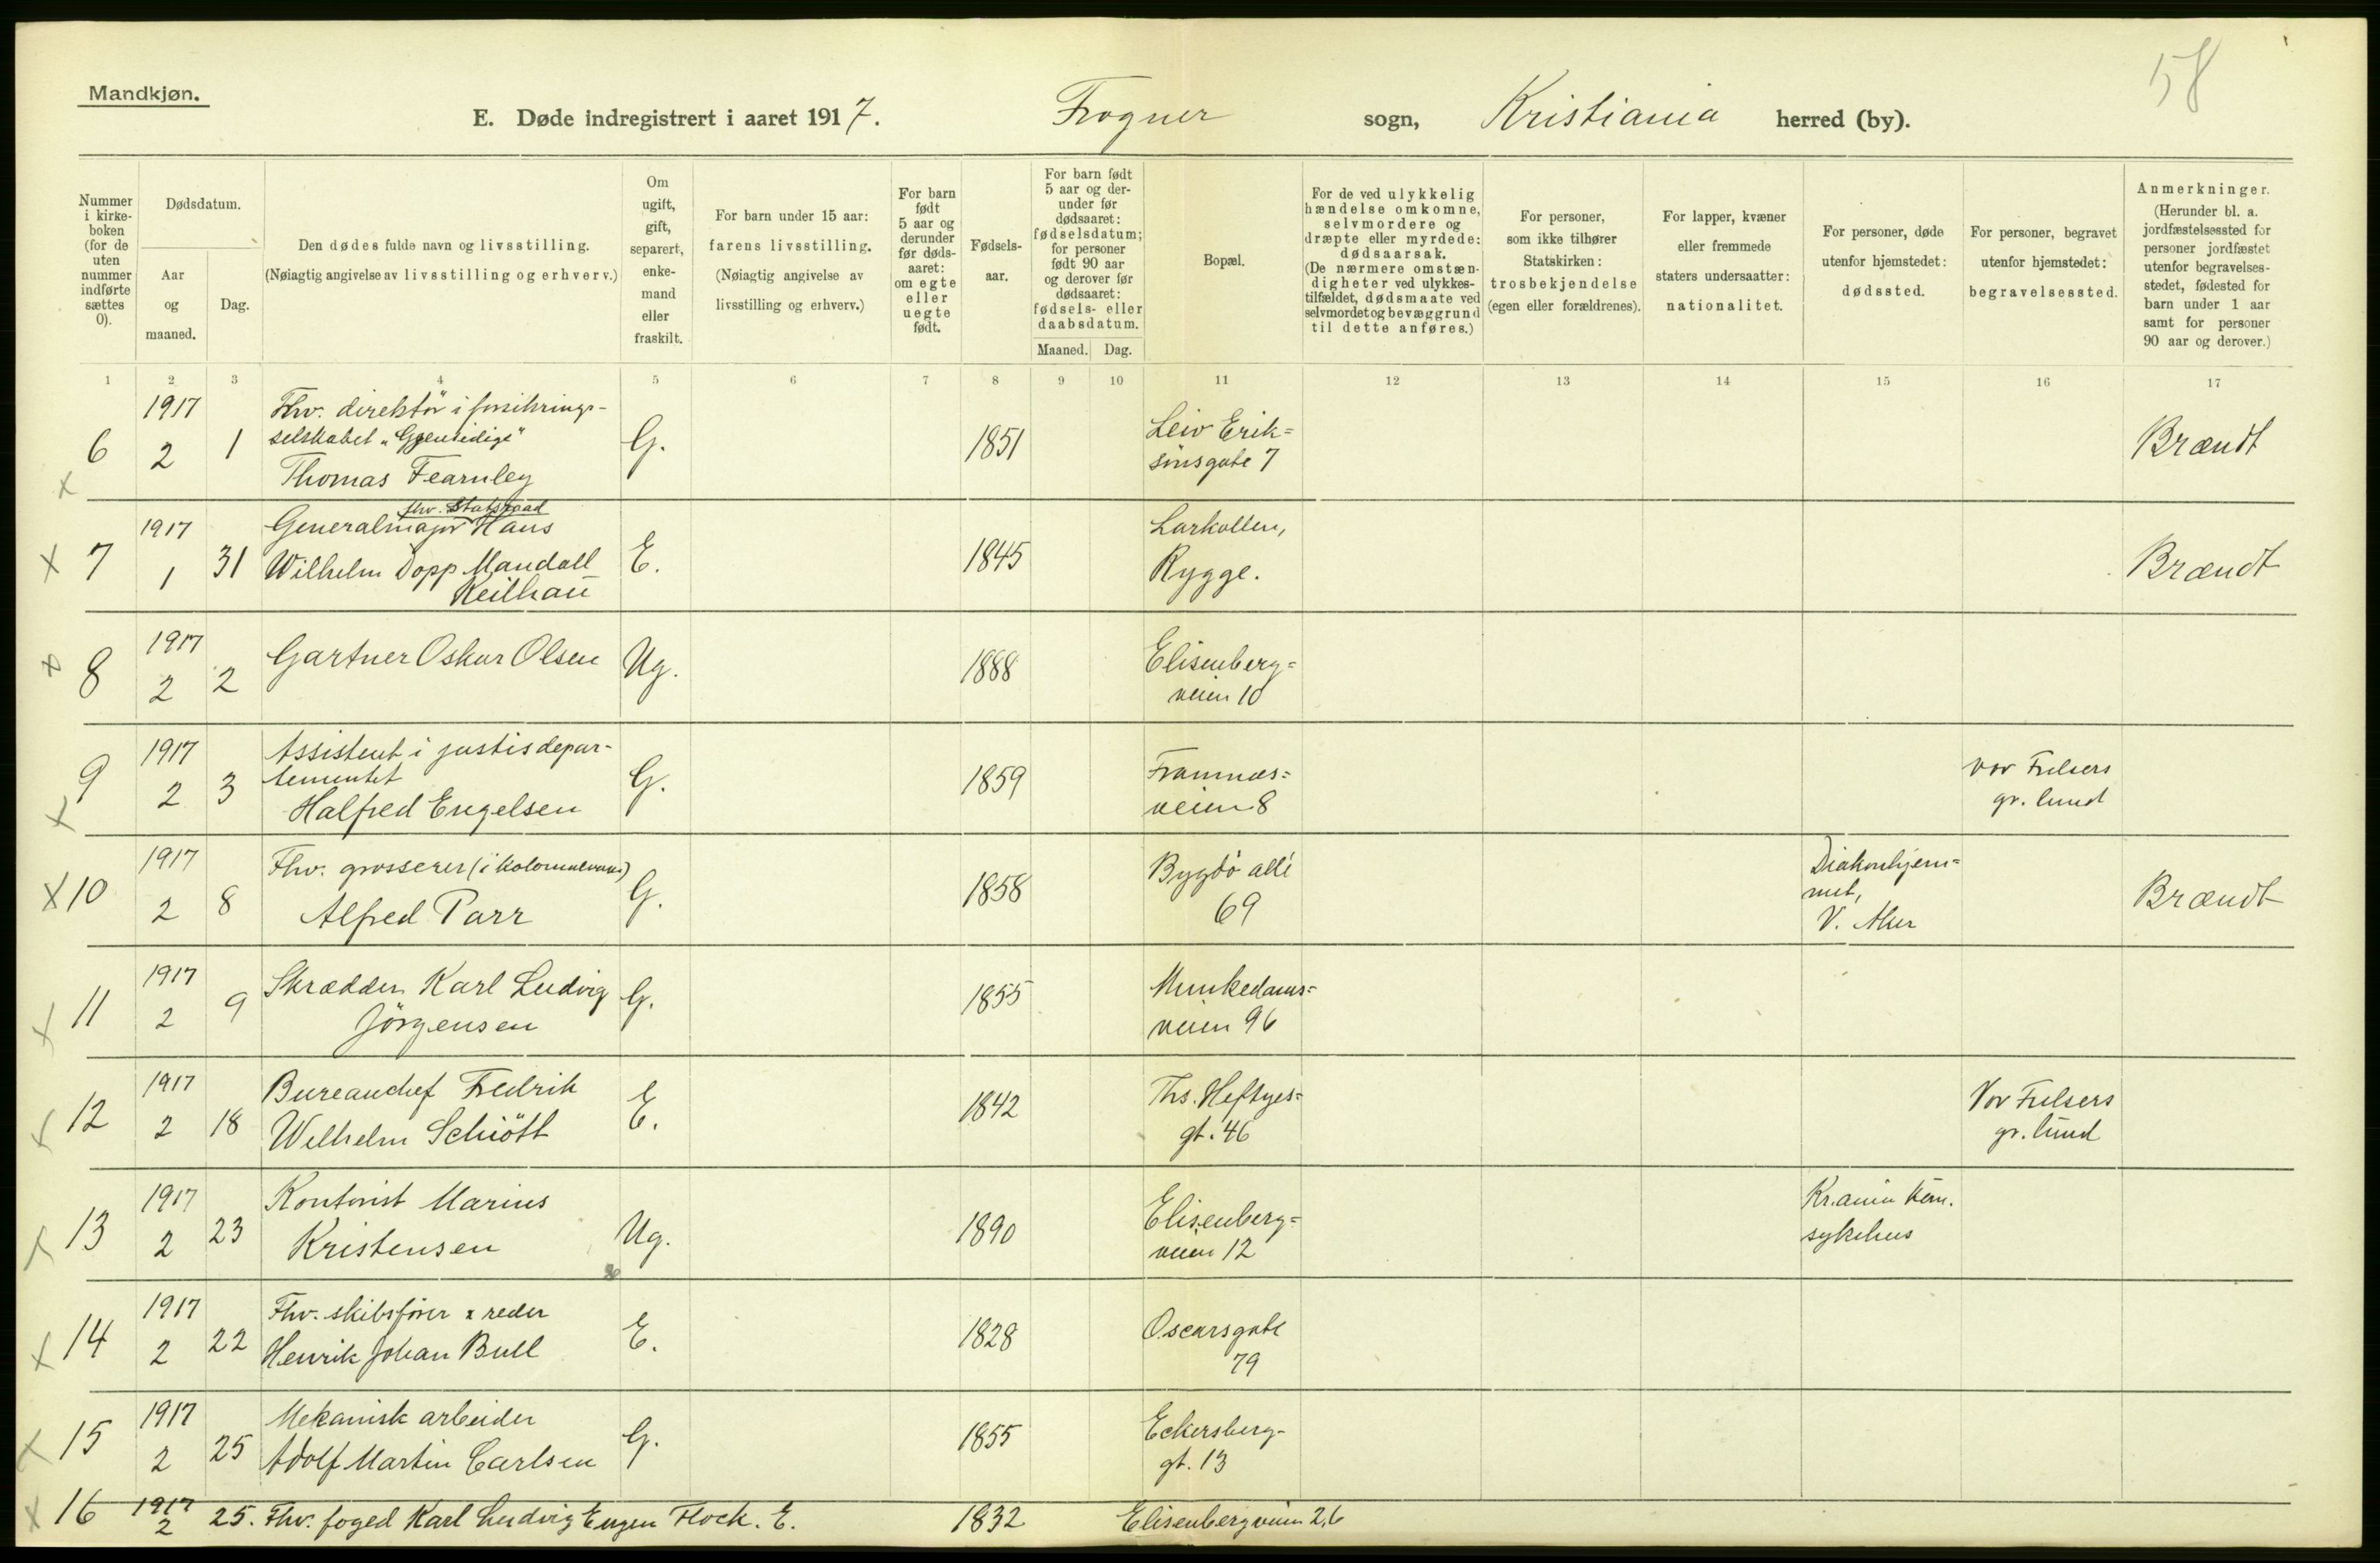 58
Mandkjøn.
E. Døde indregistrert i aaret 1917. Frogner sogn, Kristiania herred (by).
Nummer i kirke-boken (for de uten nummer indførte sættes 0).
Dødsdatum.
Aar og maaned.
Dag.
Den dødes fulde navn og livsstilling.
(Nøiagtig angivelse av livsstilling og erhverv.)
Om ugift, gift, separert, enke-mand eller fraskilt.
For barn under 15 aar:
farens livsstilling.
(Nøiagtig angivelse av
livsstilling og erhverv.)
For barn født 5 aar og derunder før døds-aaret: om egte eller uegte født.
Fødsels-aar.
For barn født 5 aar og der-under før dødsaaret: fødselsdatum; for personer født 90 aar og derover før dødsaaret: fødsels- eller daabsdatum.
Maaned. Dag.
Bopæl.
For de ved ulykkelig hændelse omkomne, selvmordere og dræpte eller myrdede: dødsaarsak.
(De nærmere omstæn-digheter ved ulykkes-tilfældet, dødsmaate ved selvmordet og bevæggrund til dette anføres.)
For personer, som ikke tilhører Statskirken: trosbekjendelse (egen eller forældrenes).
For lapper, kvæner eller fremmede staters undersaatter: nationalitet.
For personer, døde utenfor hjemstedet: dødssted.
For personer, begravet utenfor hjemstedet: begravelsessted.
Anmerkninger.
(Herunder bl. a. jordfæstelsessted for personer jordfæstet utenfor begravelses-stedet, fødested for barn under 1 aar samt for personer 90 aar og derover.)
1 2 3 4 5 6 7 8 9 10 11 12 13 14 15 16 17
6 1917 2 1 Fhv. direktör i forsikrings-
selskabet "Gjensidige"
Thomas Fearnley G. 1851 Leiv Erik=
sönsgate 7 Brændt
7 1917 1 31 fhv. Statsraad
Generalmajor Hans
Wilhelm Dopp Mandall
Keilhau E. 1845 Larkollen,
Rygge. Brændt
8 1917 2 2 Gartner Oskar Olsen Ug. 1888 Elisenberg=
veien 10
9 1917 2 3 Assistent i justisdepar-
tementet
Halfred Engelsen G. 1859 Framnæs=
veien 8 Vor Frelsers
gr. lund
10 1917 2 8 Fhv. grosserer (i kolonialvarer)
Alfred Parr G. 1858 Bygdö allé
69 Diakonhjem=
met,
V. Aker Brændt
11 1917 2 9 Skrædder Karl Ludvig
Jörgensen G. 1855 Munkedams=
veien 96
12 1917 2 18 Bureauchef Fredrik
Wilhelm Schiött E. 1842 Ths. Heftyes=
gt. 46 Vor Frelsers
gr. lund
13 1917 2 23 Kontorist Marius
Kristensen Ug. 1890 Elisenberg=
veien 12 Kr.ania kom.
sykehus
14 1917 2 22 Fhv. skibsförer & reder
Henrik Johan Bull E. 1828 Oscarsgate
79
15 1917 2 25 Mekanisk arbeider
Adolf Martin Carlsen G. 1855 Eckersberg-
gt. 13
16 1917 2 25. Fhv. foged Karl Ludvig Eugen Flock. E. 1832 Elisenbergveien 26